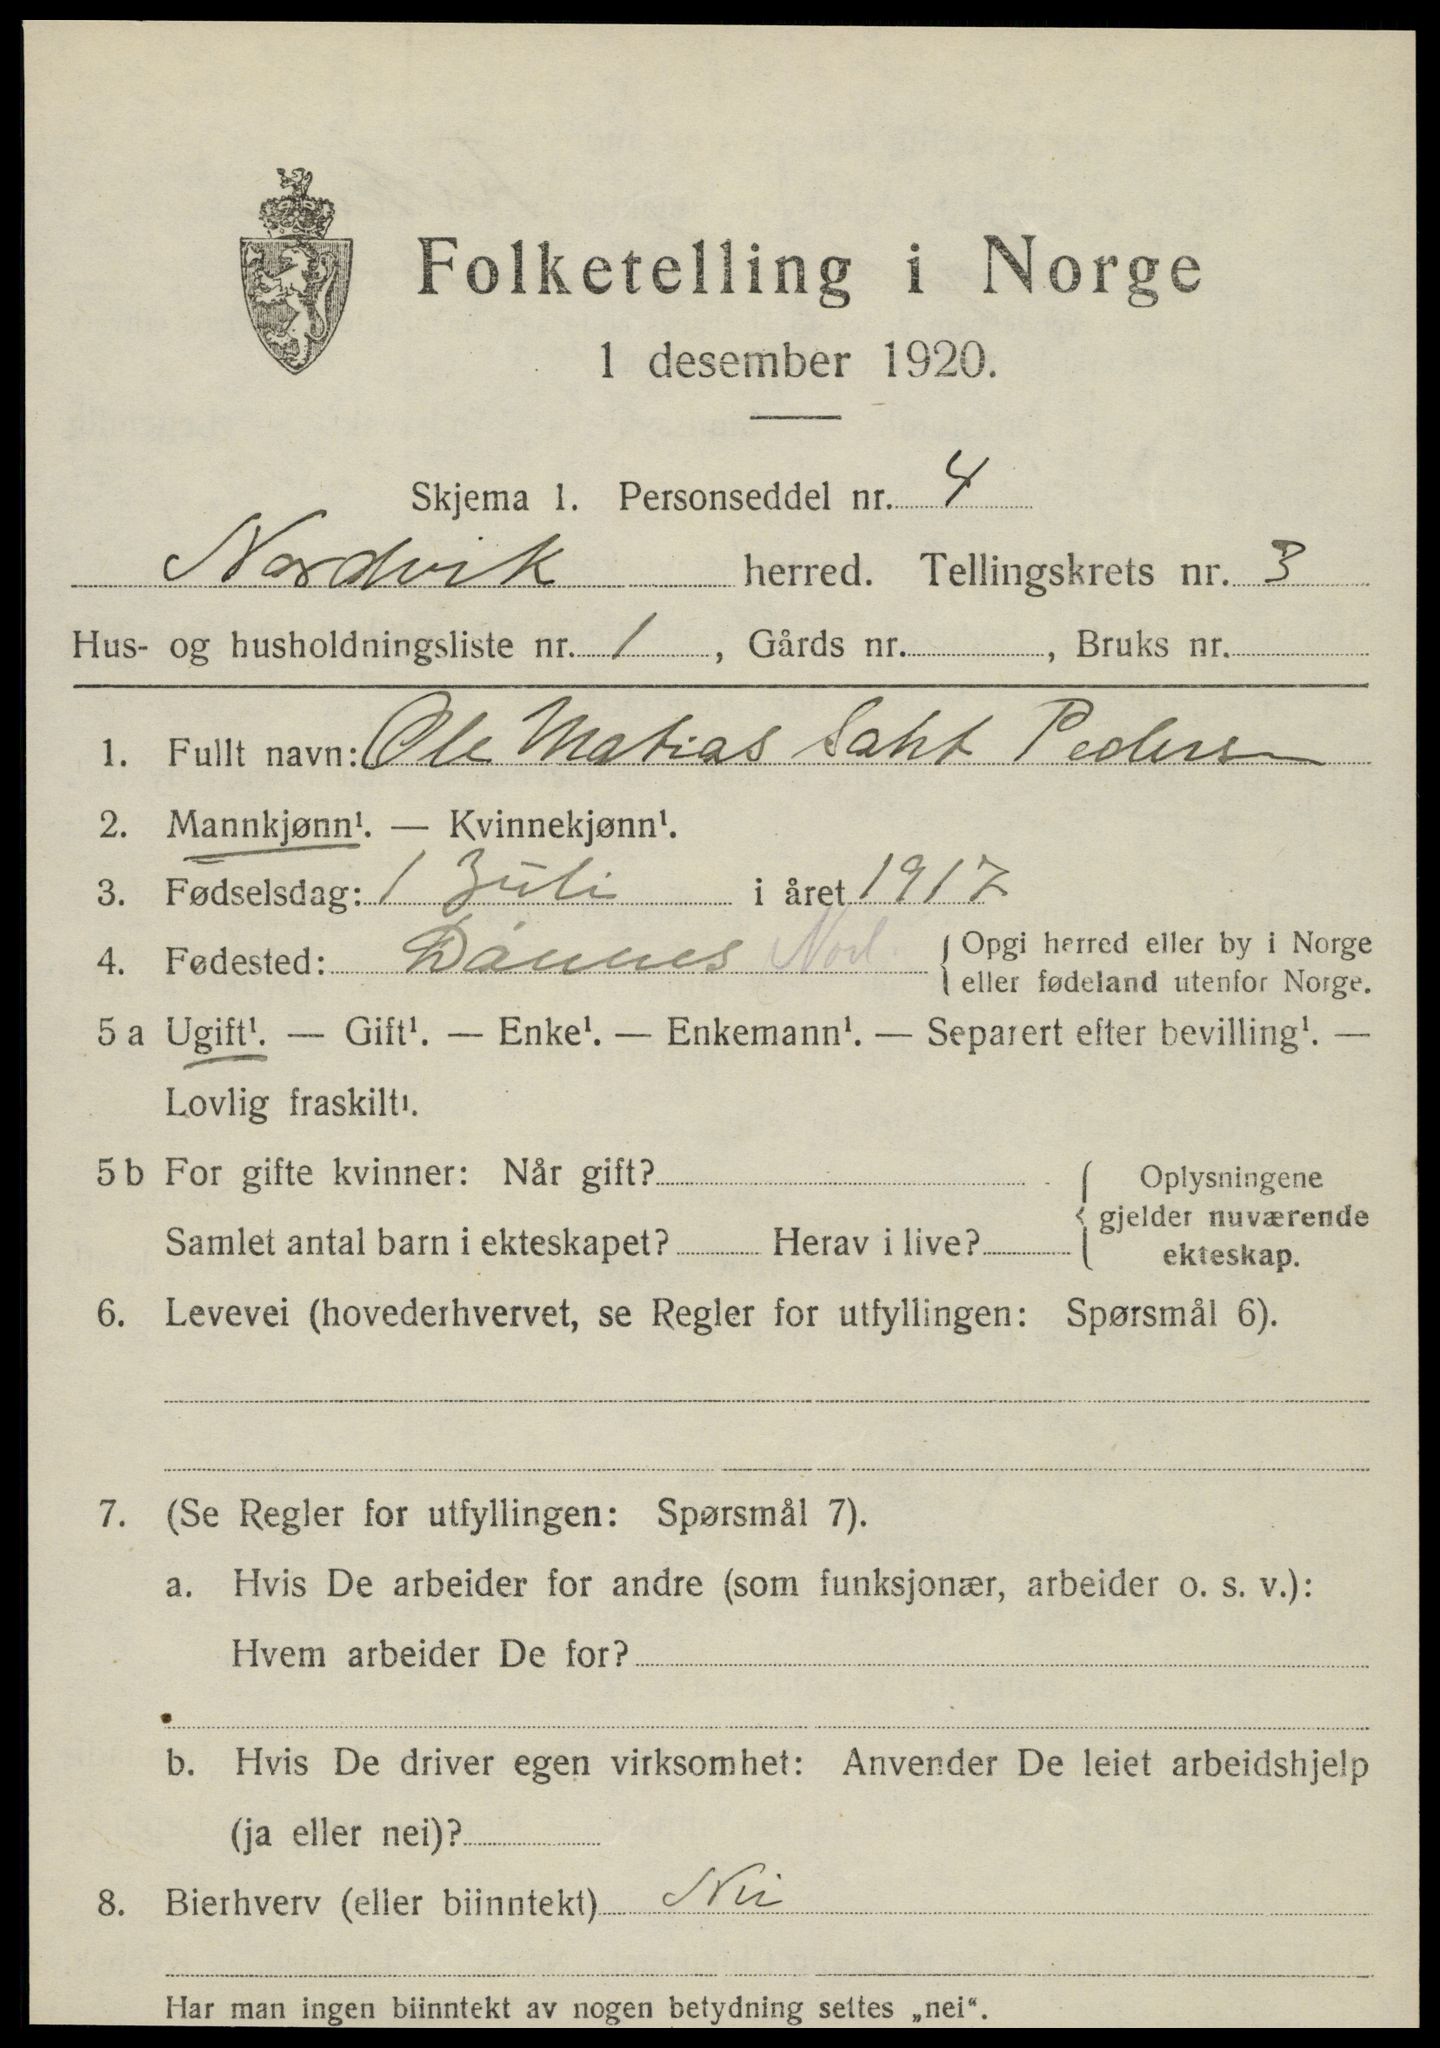 Folketelling i Norge
1 desember 1920.
Skjema 1. Personseddel nr. 4
Nordvik herred. Tellingskrets nr. 3
Hus- og husholdningsliste nr. 1, Gårds nr. , Bruks nr.
1. Fullt navn: Ole Matias Pedersen
2. Mannkjønn¹. — Kvinnekjønn¹.
3. Fødselsdag: 1 Juli i året 1917
4. Fødested: Dønnes Nord.
{ Opgi herred eller by i Norge
eller fødeland utenfor Norge.
5 a Ugift¹. — Gift¹. — Enke¹. — Enkemann¹. — Separert efter bevilling¹. —
Lovlig fraskilt¹.
5 b For gifte kvinner: Når gift?
Samlet antal barn i ekteskapet? Herav i live?
{ Oplysningene
gjelder nuværende
ekteskap.
6. Levevei (hovederhvervet, se Regler for utfyllingen: Spørsmål 6).
7. (Se Regler for utfyllingen: Spørsmål 7).
a. Hvis De arbeider for andre (som funksjonær, arbeider o. s. v.):
Hvem arbeider De for?
b. Hvis De driver egen virksomhet: Anvender De leiet arbeidshjelp
(ja eller nei)?
8. Bierhverv (eller biinntekt) Nei
Har man ingen biinntekt av nogen betydning settes „nei“.